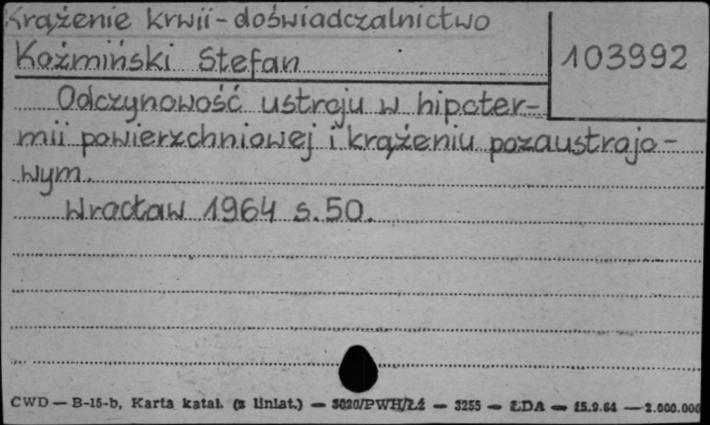 Krążenie krwii - doświadczalnictwo
103992
Koźmiński Stefan
Odczynowość ustroju w hipoter-
mii powierzchniowej i krążeniu pozaustrojo-
wym.
Wrocław 1964 s. 50.
CWD — B-15-b, Karta katal. (z liniat.) — 3020/PWH/Ł4 — 3255 — ŁDA — 15.9.64 — 2.000.000